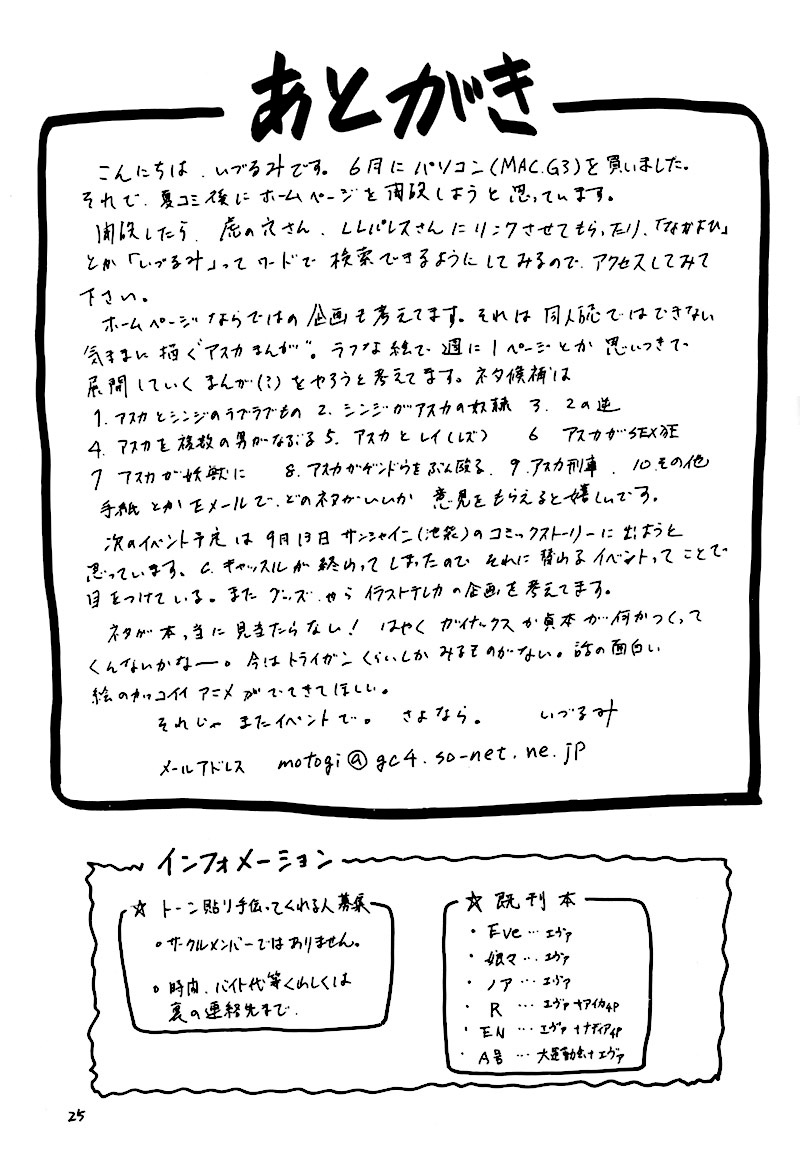 あとがき
こんにちは、いづるみです。6月にパソコン(MAC.G3)を買いました。
それで、夏コミ後にホームページを開設しようと思っています。
開設したら、虎の穴さん、LLパレスさんにリンクさせてもらったり、「なかよひ」
とか「いづるみ」ってワードで検索できるようにしてみるので、アクセスしてみて
下さい。
ホームページならではの企画も考えてます。それは同人誌ではできない
気ままに描く“アスカまんが”。ラフな絵で週に1ページとか思いつきで
展開していくまんが(?)をやろうと考えてます。ネタ候補は
1.アスカとシンジのラブラブもの 2.シンジがアスカの奴隷 3.2の逆
4.アスカを複数の男がなぶる 5.アスカとレイ(レズ) 6 アスカがSEX狂
7 アスカが妖獣に 8.アスカがゲンドウをぶん殴る. 9.アスカ刑事. 10.その他
手紙とかEメールで、どのネタがいいか意見をもらえると嬉しいです。
次のイベント予定は9月13日サンシャイン(池袋)のコミックストーリーに出ようと
思っています。C.キャッスルが終わってしまったので それに替わるイベントってことで
目をつけている。また グッズ、やら イラストテレカの企画を考えてます。
ネタが本当に見当たらない! はやく ガイナックスか貞本が何かつくって
くんないかなー。今はトライガンくらいしかみるものがない。話の面白い
絵のカッコイイアニメがでてきてほしい。
それじゃ またイベントで。 さよなら。 いづるみ
メールアドレス motogi@gc4.so-net.ne.jp
インフォメーション
☆ トーン貼り手伝ってくれる人募集
○サークルメンバーではありません。
○時間、バイト代等くわしくは
裏の連絡先まで.
☆既刊本
・Eve…エヴァ
・娘々…エヴァ
・ノア…エヴァ
・R …エヴァ+アイカ4P
・EN …エヴァ+ナディア4P
・A号 …大運動会+エヴァ
25